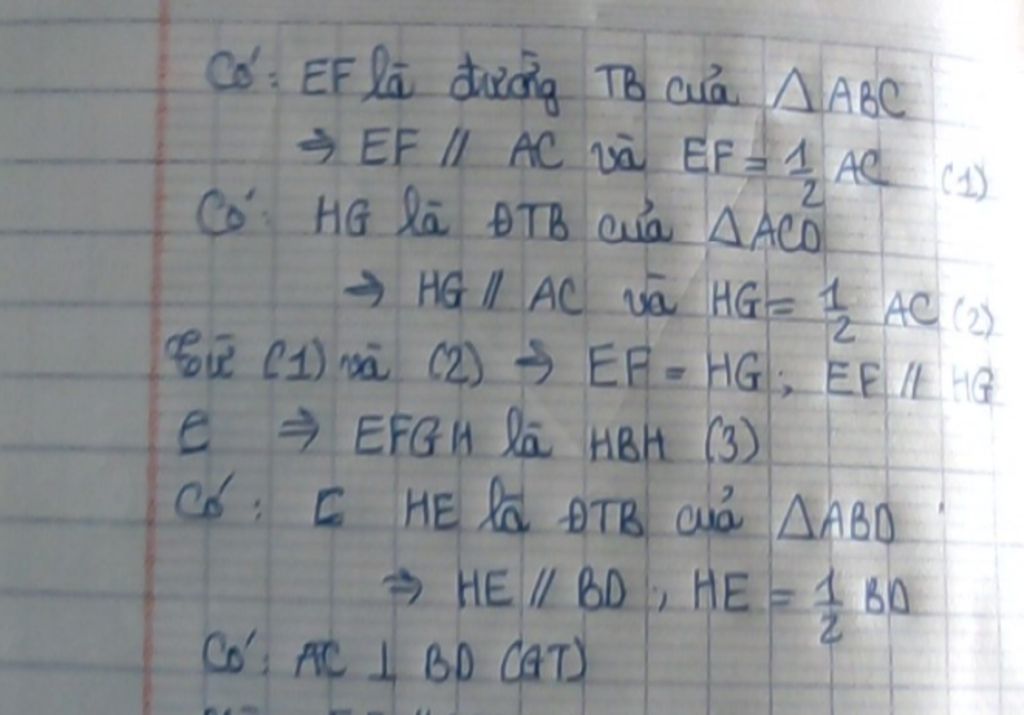 Có: EF là đường TB của △ABC
⇒ EF // AC và EF = 1/2 AC (1)
Có: HG là ĐTB của △ACD
→ HG // AC và HG = 1/2 AC (2)
Từ (1) và (2) → EF = HG; EF // HG
E ⇒ EFGH là HBH (3)
Có: E HE là ĐTB của △ABD
⇒ HE // BD, HE = 1/2 BD
Có: AC ⊥ BD (GT)